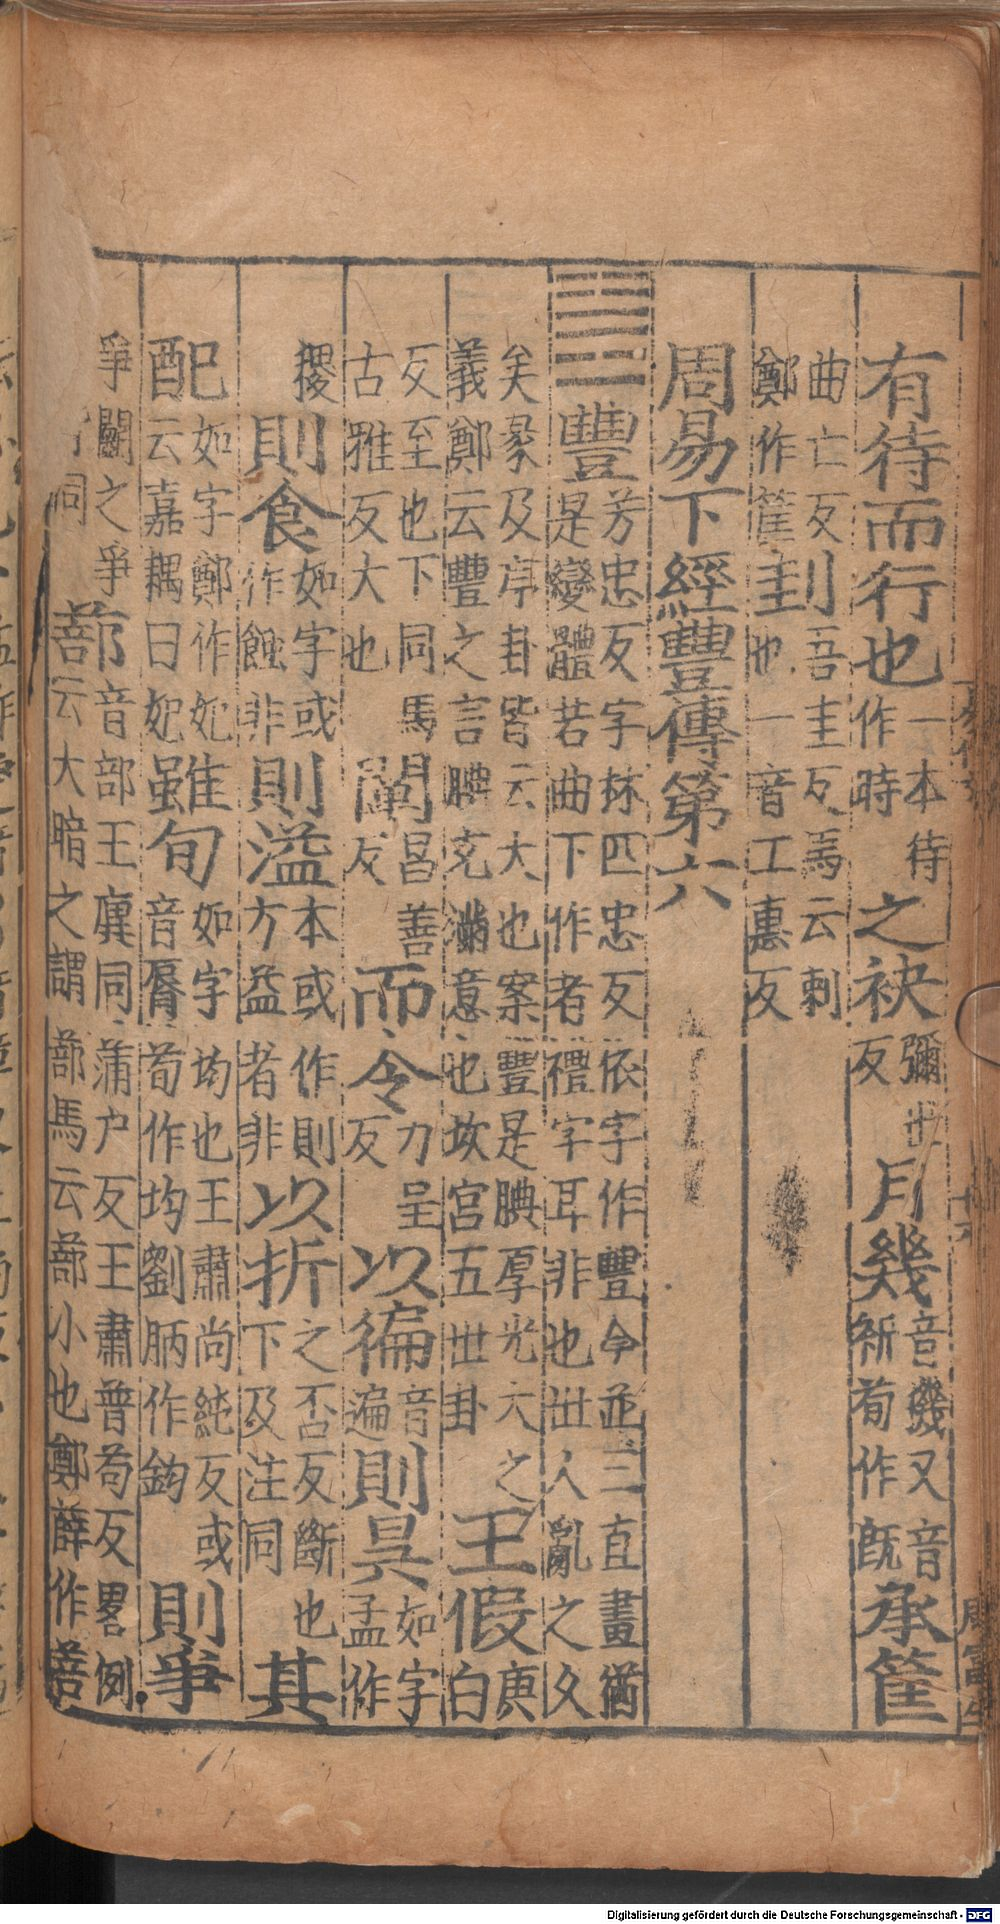 有待而行也一本待作時之袂彌世反月幾音機又音祈荀作旣承筐
曲亡反鄭作筐刲吾圭反馬云刺也一音工惠反
周易下經豐傳第六
䷶豐芳忠反字林匹忠反依字作豐今並三直畫猶是變體若曲下作者禮字耳非也世人亂之久
矣彖及序卦皆云大也案豐是腆厚光大之義鄭云豐之言腆充滿意也坎宮五世卦王假庚白
反至也下同馬古雅反大也闡昌善反而令力呈反以徧音遍則昃如字孟作
稷則食如字或作蝕非則溢本或作則方益者非以折之否反斷也下及注同其
配如字鄭作妃云嘉耦曰妃雖旬如字均也王肅尚純反或音脣荀作均劉昞作鈞則爭
爭鬬之爭同蔀音部王廙同蒲户反王肅普苟反畧例云大暗之謂蔀馬云蔀小也鄭薛作菩
Digitalisierung gefördert durch die Deutsche Forschungsgemeinschaft - DFG